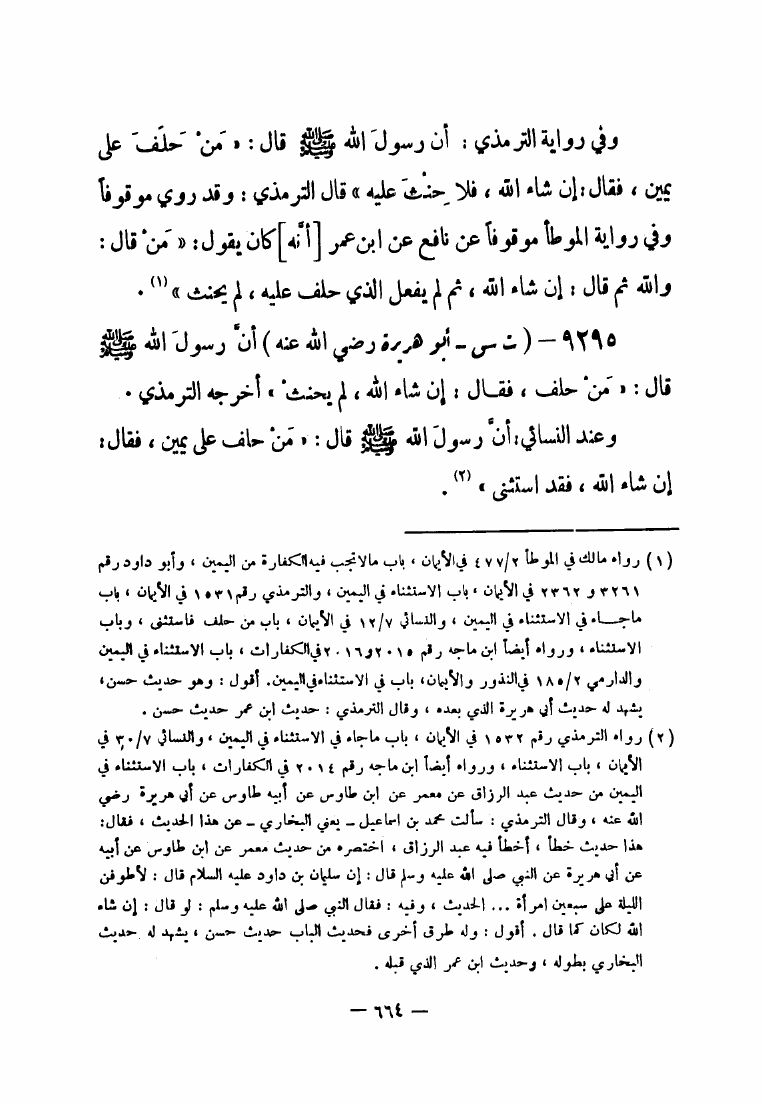 وفي رواية الترمذي : أن رسولَ الله ﷺ قال : « مَنْ حَلَفَ على
يمين ، فقال : إن شاء الله ، فلا حِنْثَ عليه » قال الترمذي : وقد روي موقوفاً
وفي رواية الموطأ موقوفاً عن نافع عن ابن عمر [أنَّه] كان يقول : « مَنْ قال :
والله ثم قال : إن شاء الله ، ثم لم يفعل الذي حلف عليه ، لم يحنث » (١) .
٩٢٩٥ – ( ت س – أبو هريرة رضي الله عنه ) أنَّ رسولَ الله ﷺ
قال : « مَنْ حلف ، فقــال : إن شاء الله ، لم يحنثْ » أخرجه الترمذي .
وعند النسائي : أنَّ رسولَ الله ﷺ قال : « مَنْ حلف على يمين ، فقال :
إن شاء الله ، فقد استثنى » (٢) .
(١) رواه مالك في الموطأ ٤٧٧/٢ في الأيمان ، باب مالا تجب فيه الكفارة من اليمين ، وأبو داود رقم
٣٢٦١ و ٢٣٦٢ في الأيمان ، باب الاستثناء في اليمين ، والترمذي رقم ١٥٣١ في الأيمان ، باب
ماجــاء في الاستثناء في اليمين ، والنسائي ١٢/٧ في الأيمان ، باب من حلف فاستثنى ، وباب
الاستثناء ، ورواه أيضاً ابن ماجه رقم ٢٠١٥ و ٢٠١٦ في الكفارات ، باب الاستثناء في اليمين
والدارمي ١٨٥/٢ في النذور والأيمان ، باب في الاستثناء في اليمين . أقول : وهو حديث حسن ،
يشهد له حديث أبي هريرة الذي بعده ، وقال الترمذي : حديث ابن عمر حديث حسن .
(٢) رواه الترمذي رقم ١٥٣٢ في الأيمان ، باب ماجاء في الاستثناء في اليمين ، والنسائي ٣٠/٧ في
الأيمان ، باب الاستثناء ، ورواه أيضاً ابن ماجه رقم ٢٠١٤ في الكفارات ، باب الاستثناء في
اليمين من حديث عبد الرزاق عن معمر عن ابن طاوس عن أبيه طاوس عن أبي هريرة رضي
الله عنه ، وقال الترمذي : سألت محمد بن اسماعيل – يعني البخاري – عن هذا الحديث ، فقال :
هذا حديث خطأ ، أخطأ فيه عبد الرزاق ، اختصره من حديث معمر عن ابن طاوس عن أبيه
عن أبي هريرة عن النبي صلى الله عليه وسلم قال : إن سليمان بن داود عليه السلام قال : لأطوفن
الليلة على سبعين امرأة ... الحديث ، وفيه : فقال النبي صلى الله عليه وسلم : لو قال : إن شاء
الله لكان كما قال . أقول : وله طرق أخرى فحديث الباب حديث حسن ، يشهد له حديث
البخاري بطوله ، وحديث ابن عمر الذي قبله .
– ٦٦٤ –